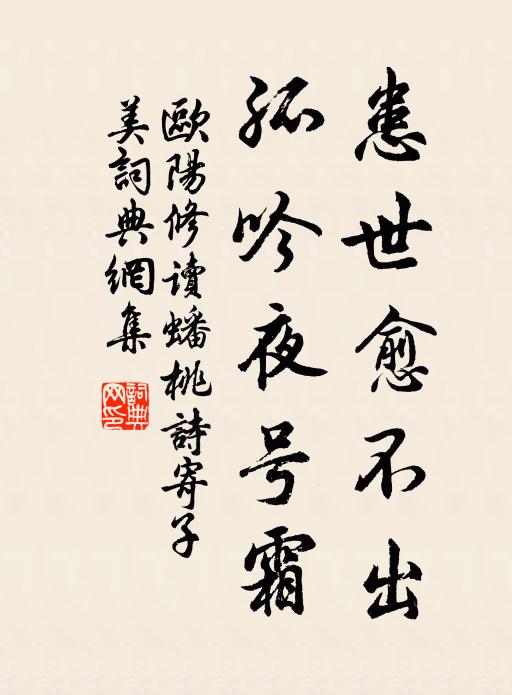 患世愈不出
孤吟夜号霜
歐陽修读蟠桃詩寄子
美詞典網集
詞典
网印